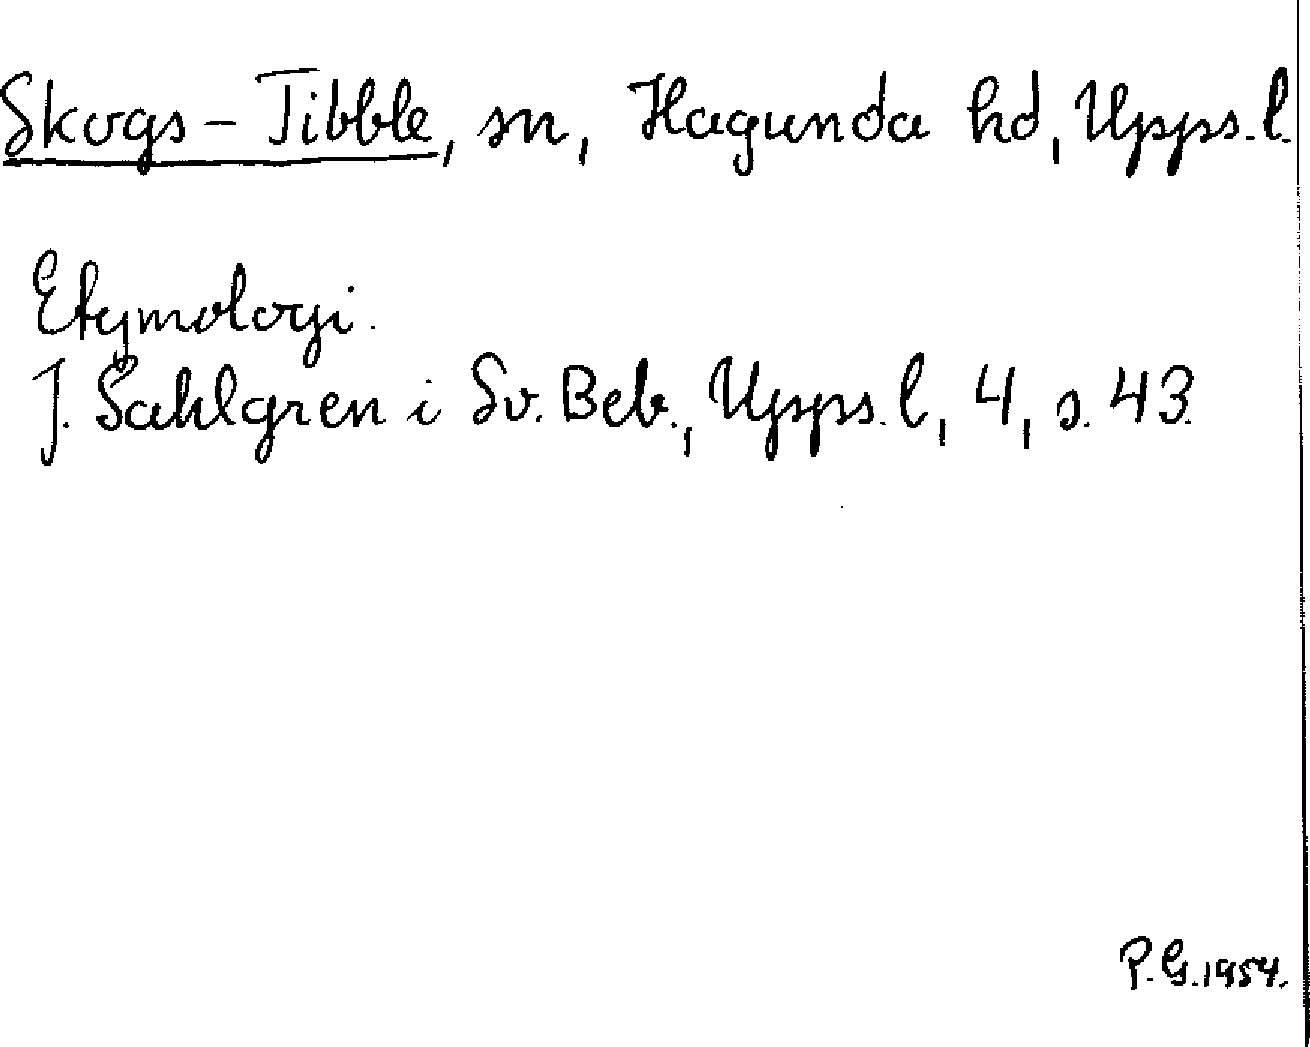 Skogs-Tibble, sn, Hagunda hd, Upps. l.
Etymologi.
J. Sahlgren i Sv. Beb., Upps. l, 4, s. 43.
P.G. 1954.